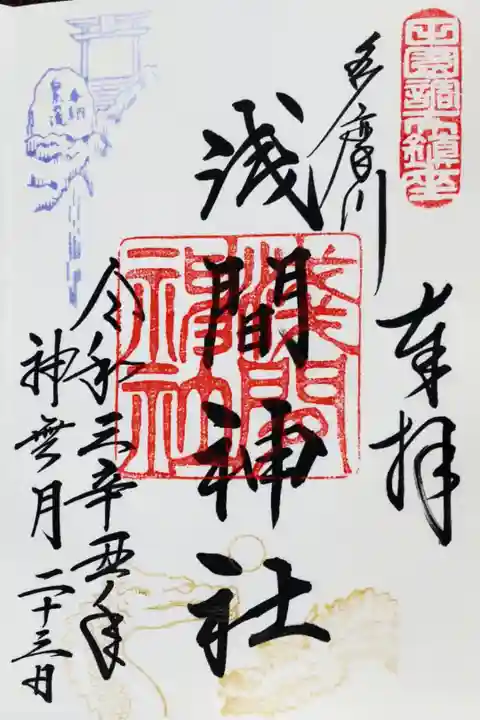 奉拝
多摩川
浅間神社
浅間
神社
令和三辛丑年
神無月二十三日